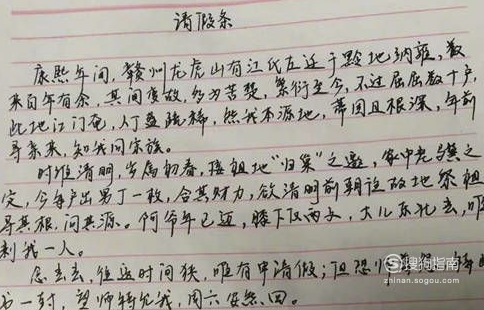 请假条
康熙年间,赣州龙虎山有江氏左迁于黔地纳雍,数
来百年有余,其间变故,多为苦楚,繁衍至今,不过屈屈数十户,
此地江门奄,人丁益疏稀,然我本源地,蒂固且根深,年前
寻亲来,知我同宗族。
时维清明,岁属初春,接祖地“归巢”之邀,家中老骥之
定,今每户出男丁一枚,合其财力,欲清明前朝往故地祭祖
寻其根,问其源。何爷年已迈,膝下仅两女,大儿东北去,唯
剩我一人。
念去去,往返时间狭,唯有申请假;但恐
书一封,望师特允我,周六安然回。
搜狗指南
zhinan.sogou.com